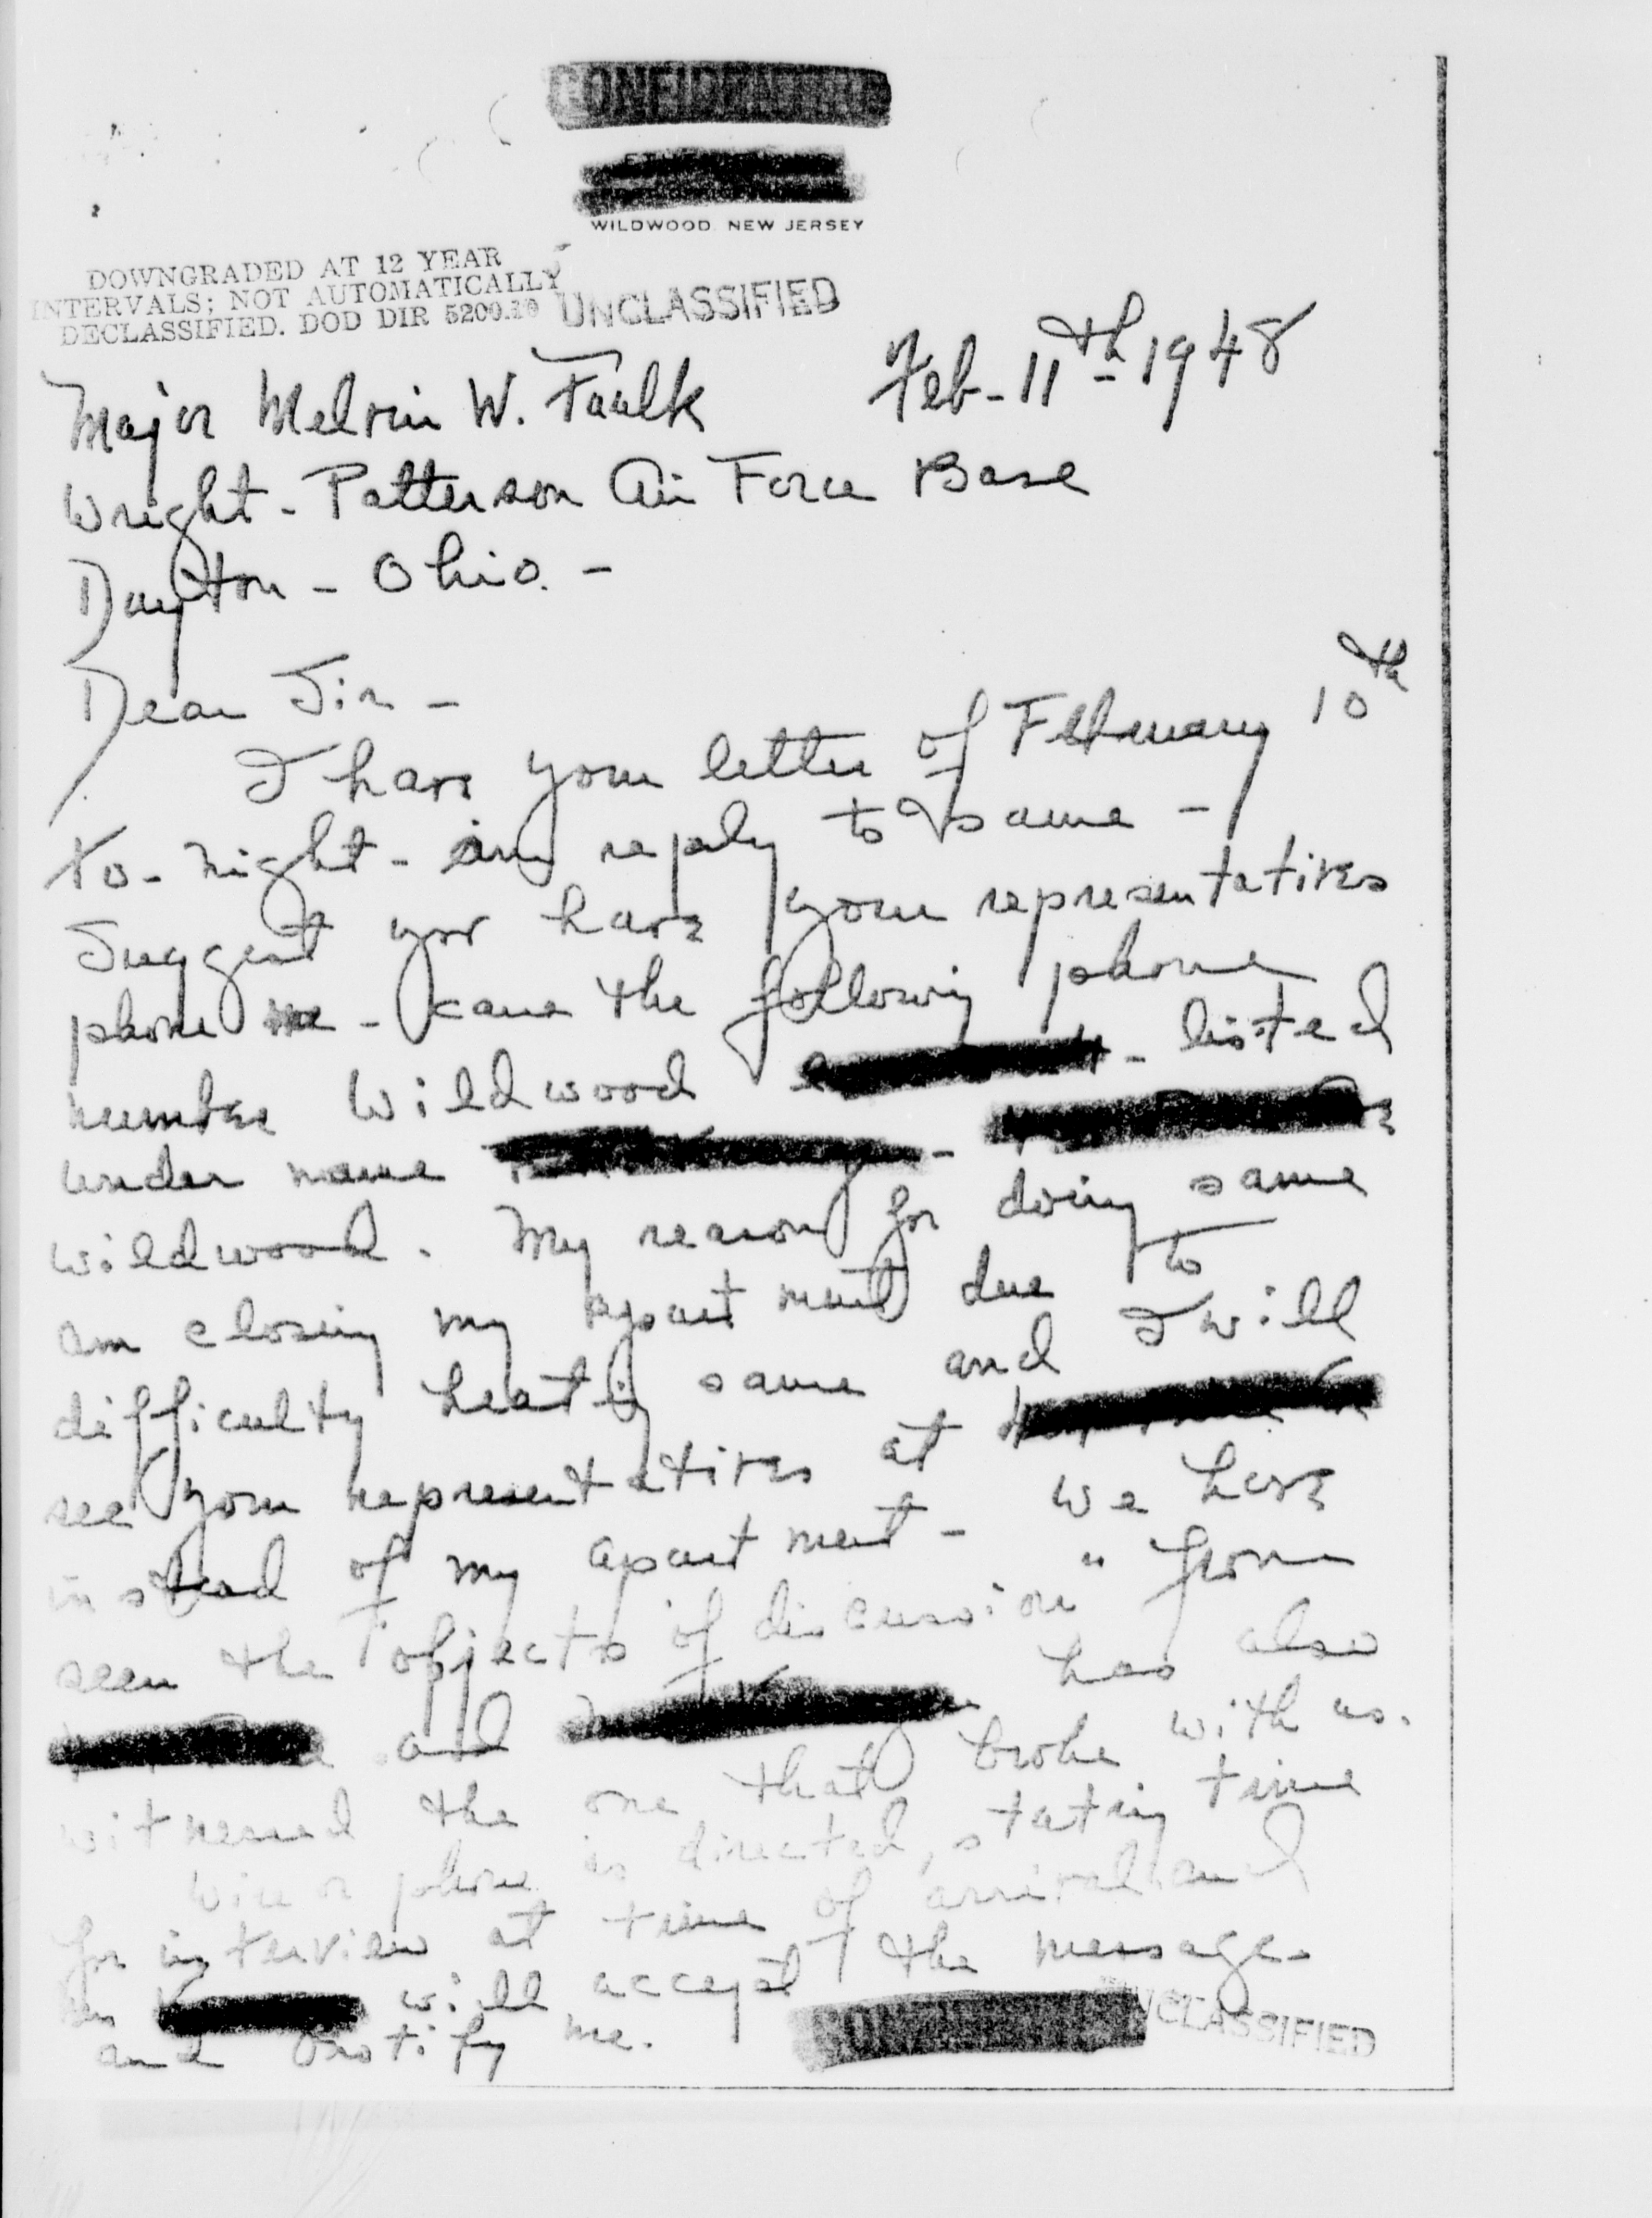 CONFIDENTIAL
WILDWOOD, NEW JERSEY
DOWNGRADED AT 12 YEAR
INTERVALS; NOT AUTOMATICALLY
DECLASSIFIED. DOD DIR 5200.10
UNCLASSIFIED
Feb - 11th - 1948
Major Melvin W. Faulk
Wright - Patterson Air Force Base
Dayton - Ohio. -
Dear Sir -
I have your letter of February 10th
to-night - in reply to same -
Suggest you have your representatives
phone me - care the following phone
number Wildwood - listed
under name -
Wildwood. My reason for doing same
am closing my apartment due to
difficulty heating same and I will
see your representatives at
instead of my apartment - we have
seen the "objects of discussion" from
and has also
witnessed the one that broke with us.
Wire or phone as directed, stating time
for interview at time of arrival and
will accept the message
and notify me.
UNCLASSIFIED